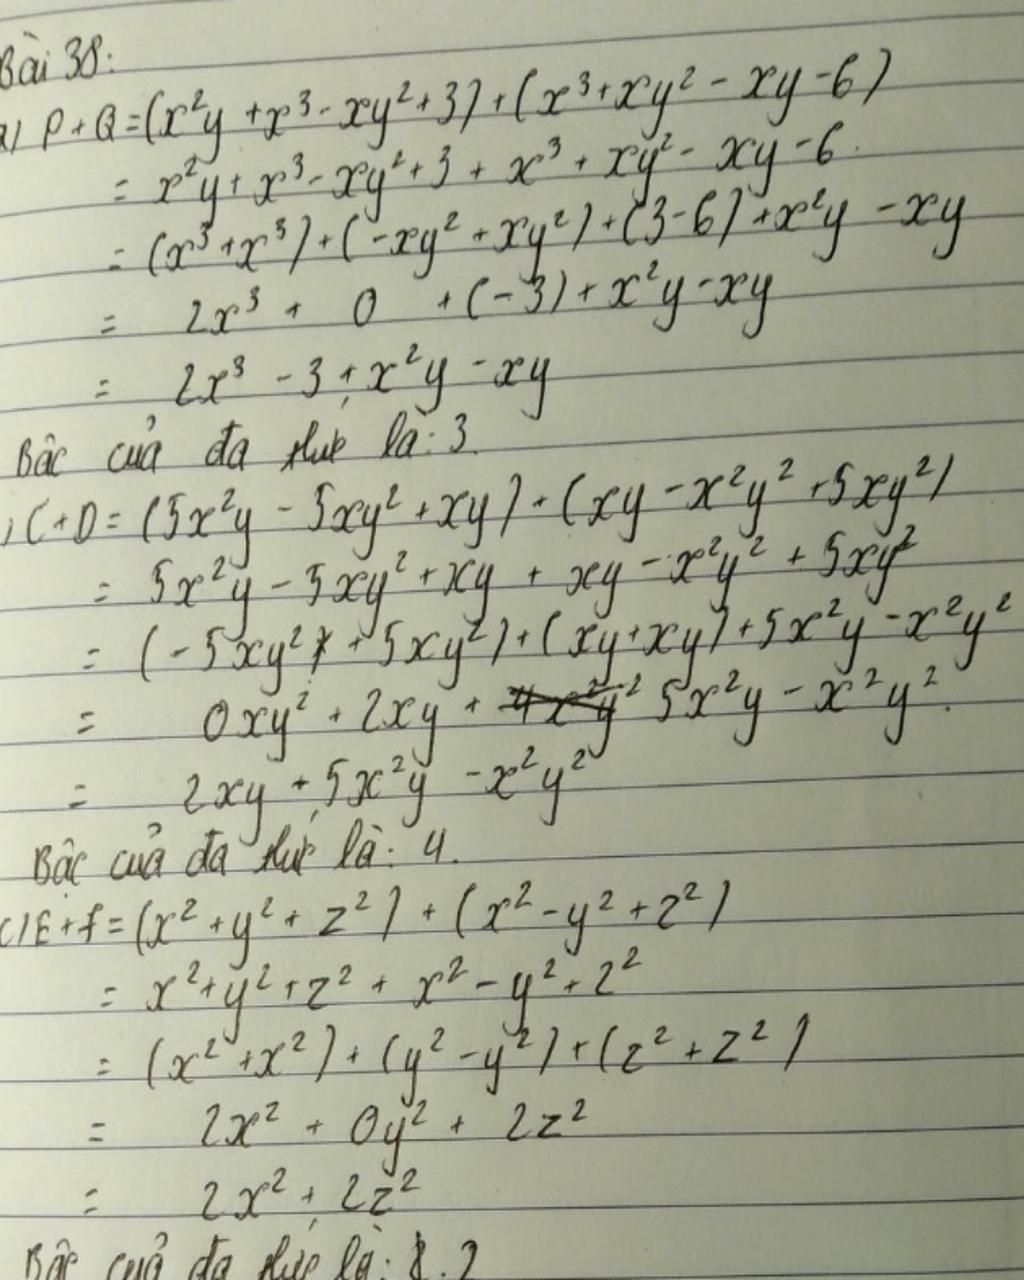 Bài 38:
a) P+Q=(x²y+x³-xy²+3)+(x³+xy²-xy-6)
= x²y+x³-xy²+3+x³+xy²-xy-6.
= (x³+x³)+(-xy²+xy²)+(3-6)+x²y-xy
= 2x³+0+(-3)+x²y-xy
= 2x³-3+x²y-xy
Bậc của đa thức là: 3.
) C+D=(5x²y-5xy²+xy)+(xy-x²y²+5xy²)
= 5x²y-5xy²+xy+xy-x²y²+5xy²
= (-5xy²+5xy²)+(xy+xy)+5x²y-x²y²
= 0xy²+2xy+5x²y-x²y².
= 2xy+5x²y-x²y²
Bậc của đa thức là: 4.
c) E+F=(x²+y²+z²)+(x²-y²+z²)
= x²+y²+z²+x²-y²+z²
= (x²+x²)+(y²-y²)+(z²+z²)
= 2x²+0y²+2z²
= 2x²+2z²
Bậc của đa thức là: 2